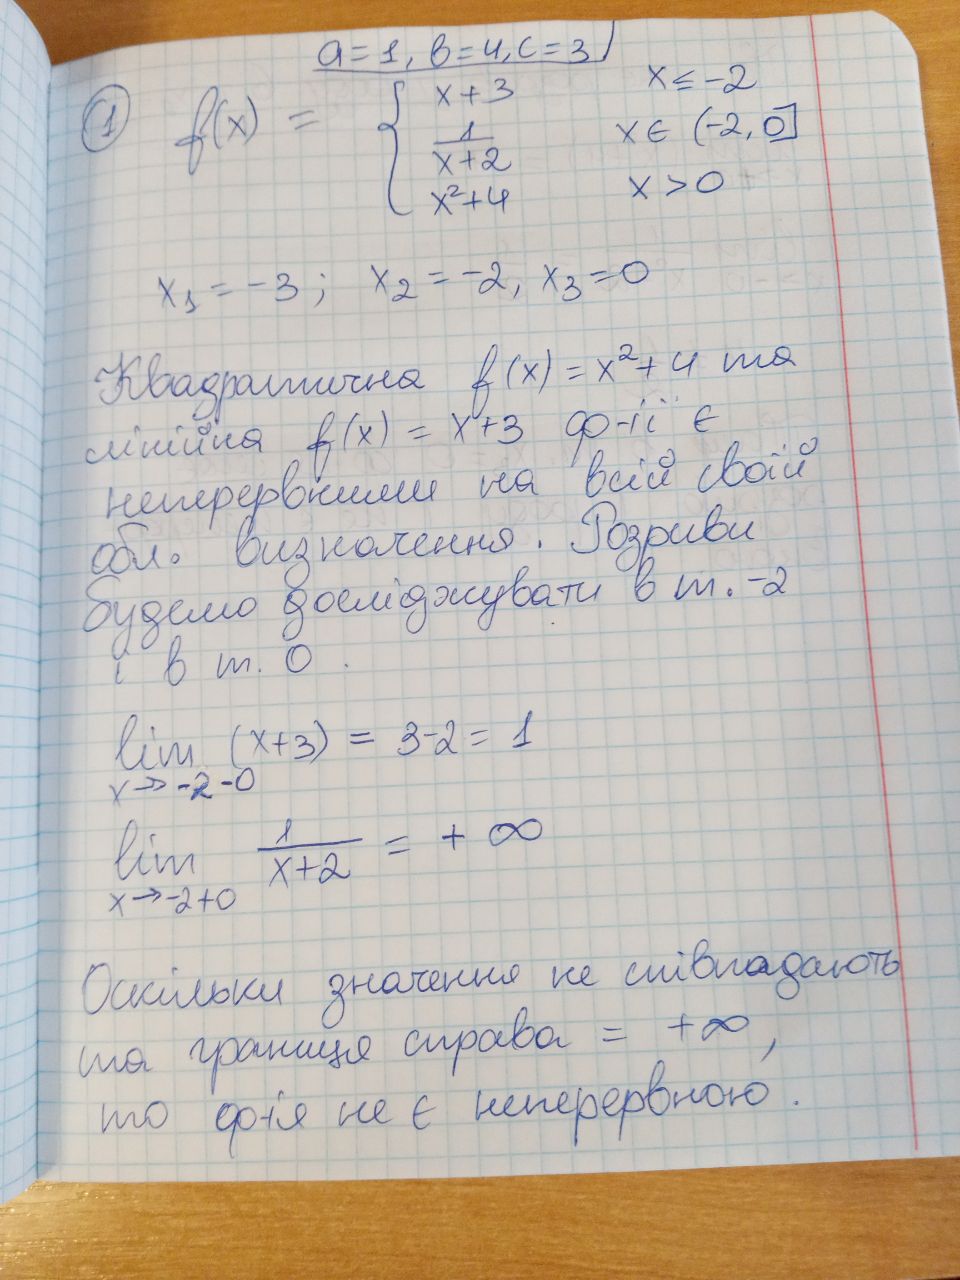 a=1, в=4, c=3
1 f(x) = { x+3 x ≤ -2
1/(x+2) x ∈ (-2, 0]
x²+4 x > 0
x₁ = -3 ; x₂ = -2, x₃ = 0
Квадратична f(x) = x²+4 та
лінійна f(x) = x+3 ф-ії є
неперервними на всій своїй
обл. визначення. Розриви
будемо досліджувати в т. -2
і в т. 0 .
lim (x+3) = 3-2 = 1
x→-2-0
lim 1/(x+2) = + ∞
x→-2+0
Оскільки значення не співпадають
та границя справа = +∞,
то ф-ія не є неперервною.